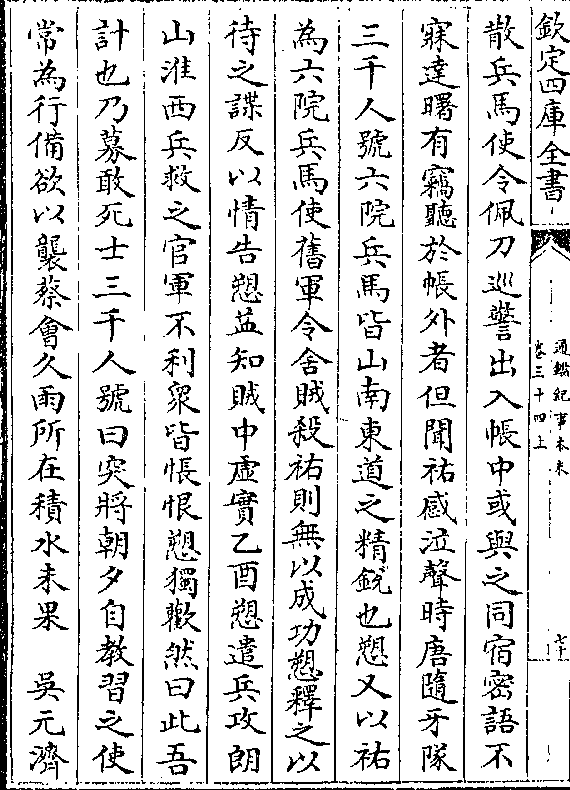 欽定四庫全書
通鑑紀事本末
卷三十四上
七十
散兵馬使令佩刀巡警出入帳中或與之同宿密語不
寐達曙有竊聽於帳外者但聞祐感泣聲時唐隨牙隊
三千人號六院兵馬皆山南東道之精鋭也愬又以祐
為六院兵馬使舊軍令舍賊殺祐則無以成功愬釋之以
待之諜反以情告愬益知賊中虛實乙酉愬遣兵攻朗
山淮西兵救之官軍不利衆皆悵恨愬獨歡然曰此吾
計也乃募敢死士三千人號曰突將朝夕自教習之使
常為行備欲以襲蔡會久雨所在積水未果　吳元濟